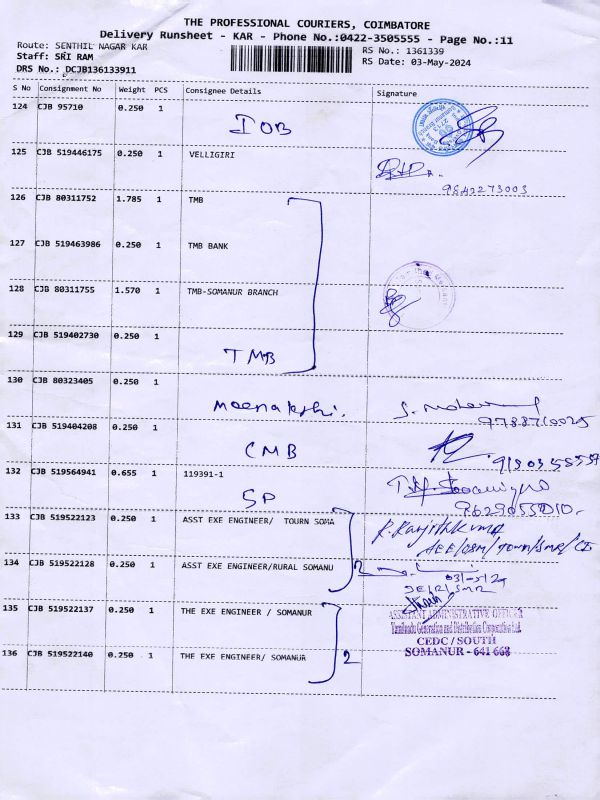 THE PROFESSIONAL COURIERS, COIMBATORE
Delivery Runsheet - KAR - Phone No.:0422-3505555 - Page No.:11
Route: SENTHIL NAGAR KAR
RS No.: 1361339
Staff: SRI RAM
RS Date: 03-May-2024
DRS No.: DCJB136133911
S No Consignment No Weight PCS Consignee Details Signature
124 CJB 95710 0.250 1
IOB
125 CJB 519446175 0.250 1 VELLIGIRI
9642273003
126 CJB 80311752 1.785 1 TMB
127 CJB 519463986 0.250 1 TMB BANK
128 CJB 80311755 1.570 1 TMB-SOMANUR BRANCH
129 CJB 519402730 0.250 1
TMB
130 CJB 80323405 0.250 1
Meenakshi.
131 CJB 519404208 0.250 1
CMB
132 CJB 519564941 0.655 1 119391-1
SP
133 CJB 519522123 0.250 1 ASST EXE ENGINEER/ TOURN SOMA
R. Ranjithkumar
AEE/O&M/Town/SMR/
134 CJB 519522128 0.250 1 ASST EXE ENGINEER/RURAL SOMANU 2
135 CJB 519522137 0.250 1 THE EXE ENGINEER / SOMANUR
ASSISTANT ADMINISTRATIVE OFFICER
Tamilnadu Generation and Distribution Corporation Ltd.
CEDC / SOUTH
SOMANUR - 641 668
136 CJB 519522140 0.250 1 THE EXE ENGINEER/ SOMANUR 2